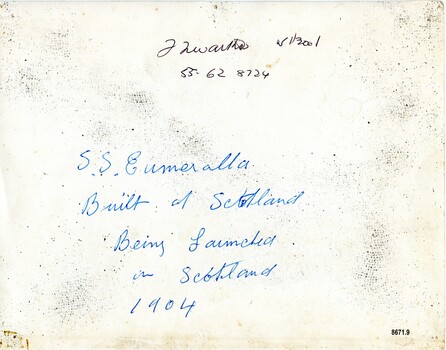 55-62 8724
S.S. Eumeralla.
Built at Scotland.
Being Launched.
in Scotland
1904
8671.9